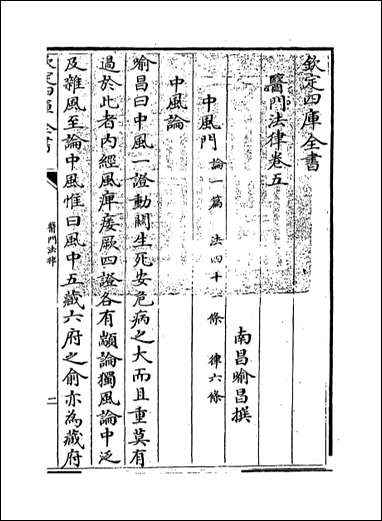 欽定四庫全書
醫門法律卷五
南昌喻昌撰
中風門 論一篇 法四十一條 律六條
中風論
喻昌曰中風一證動關生死安危病之大而且重莫有
過於此者內經風痺痿厥四證各有顓論獨風論中泛
及雜風至論中風惟曰風中五藏六府之俞亦為藏府
欽定四庫全書
醫門法律